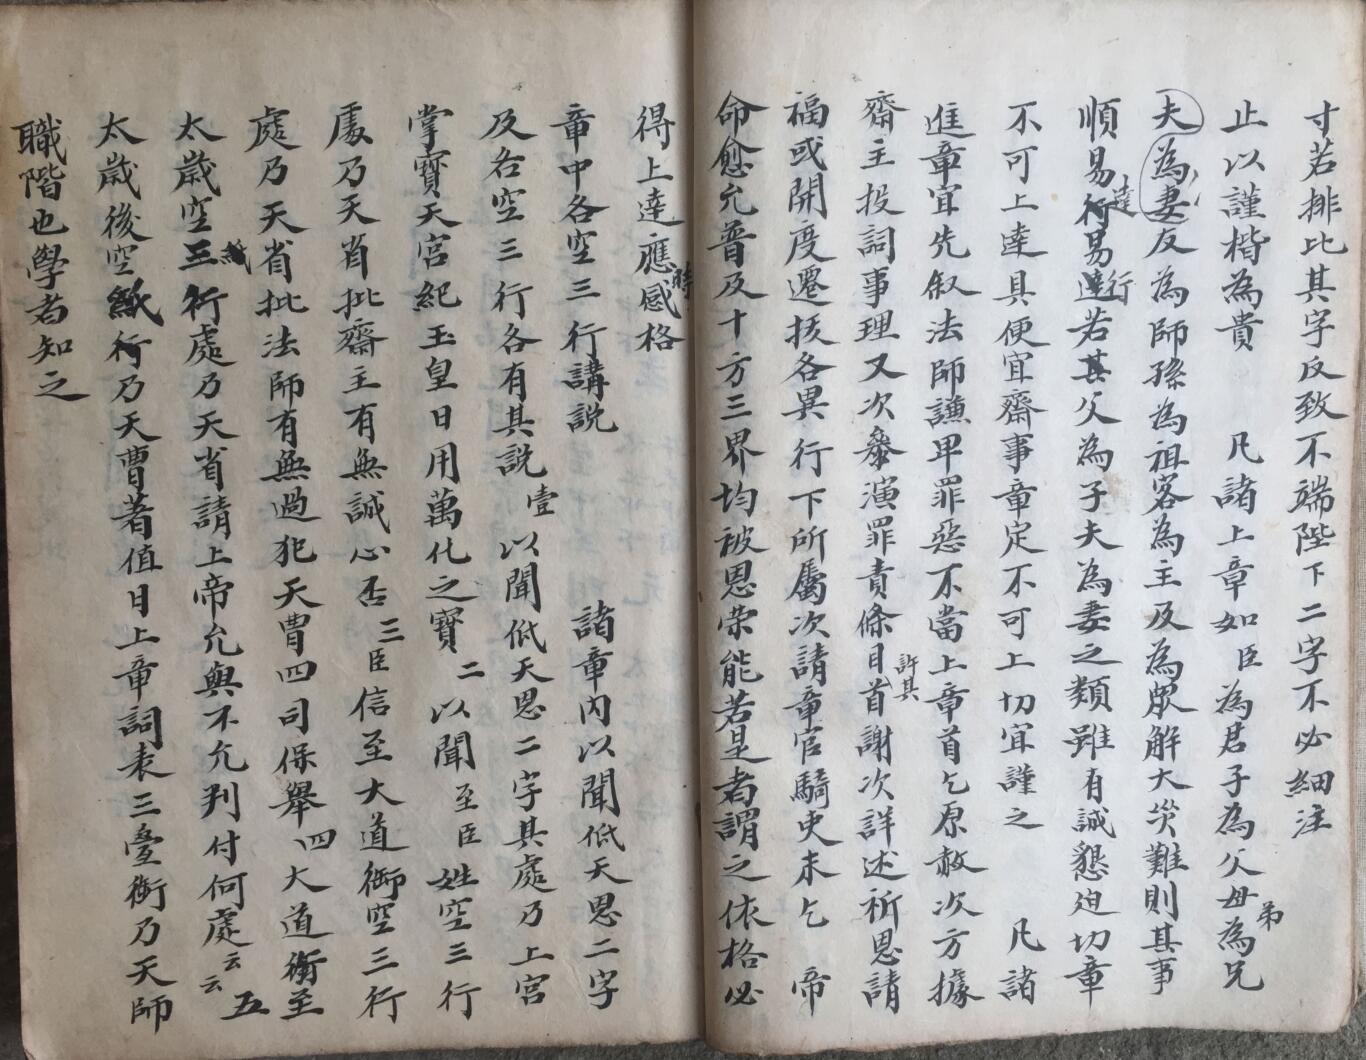 寸若排比其字反致不端陛下二字不必細注
止以謹楷為貴　凡諸上章如臣為君子為父母為兄弟
夫為妻友為師孫為祖客為主及為眾解大災難則其事
順易達行易達行若其父為子夫為妻之類雖有誠懇迫切章
不可上達具便宜齋事章定不可上切宜謹之　凡諸
進章宜先叙法師謙卑罪惡不當上章首乞原赦次方據
齋主投詞事理又次參演罪責條目許其首謝次詳述祈恩請
福或開度遷拔各異行下所屬次請章官騎吏末乞　帝
命愈允普及十方三界均被恩荣能若是者謂之依格必
得上達應時感格
章中各空三行講説　諸章内以聞低天恩二字
及右空三行各有其説　壹以聞低天恩二字其處乃上宮
掌寳天宮紀玉皇日用萬化之寳　二以聞　至臣姓空三行
處乃天省批齋主有無誠心否　三臣信至大道御空三行
處乃天省批法師有無過犯天曹四司保舉　四大道銜至
太歲空三紙行處乃天省請上帝允與不允判付何處云云　五
太歲後空紙行乃天曹著值日上章詞表三臺銜乃天師
職階也學者知之